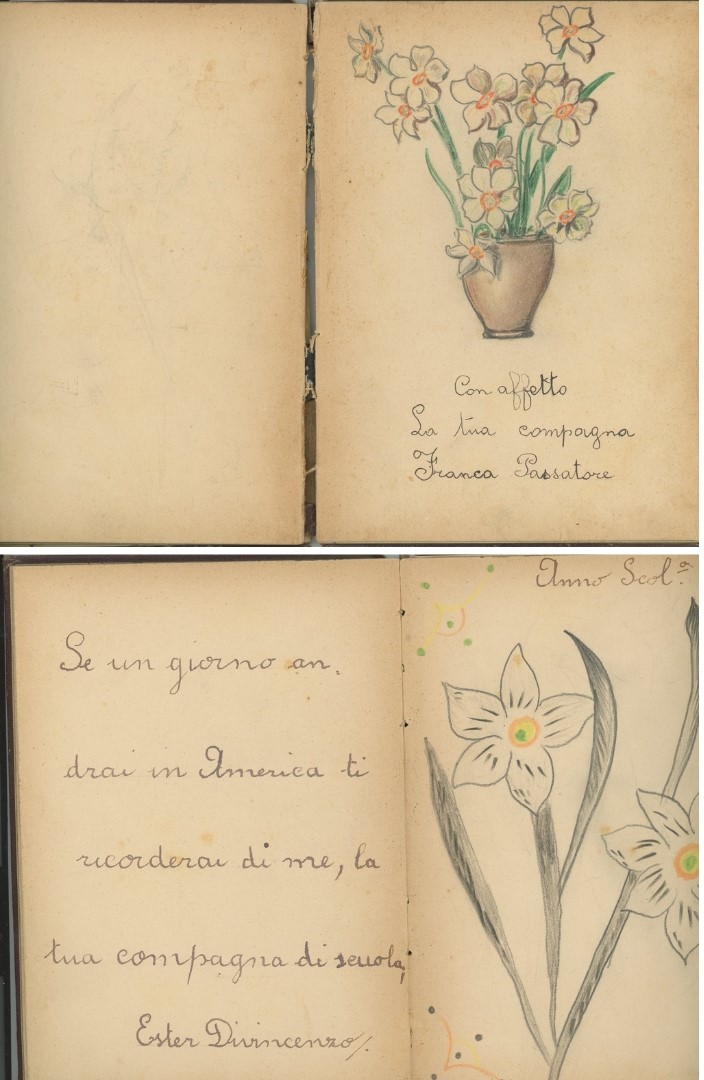 Con affetto
La tua compagna
Franca Passatore
Anno Scol.ᵃ
Se un giorno an.
drai in America ti
ricorderai di me, la
tua compagna di scuola,
Ester Divincenzo/.